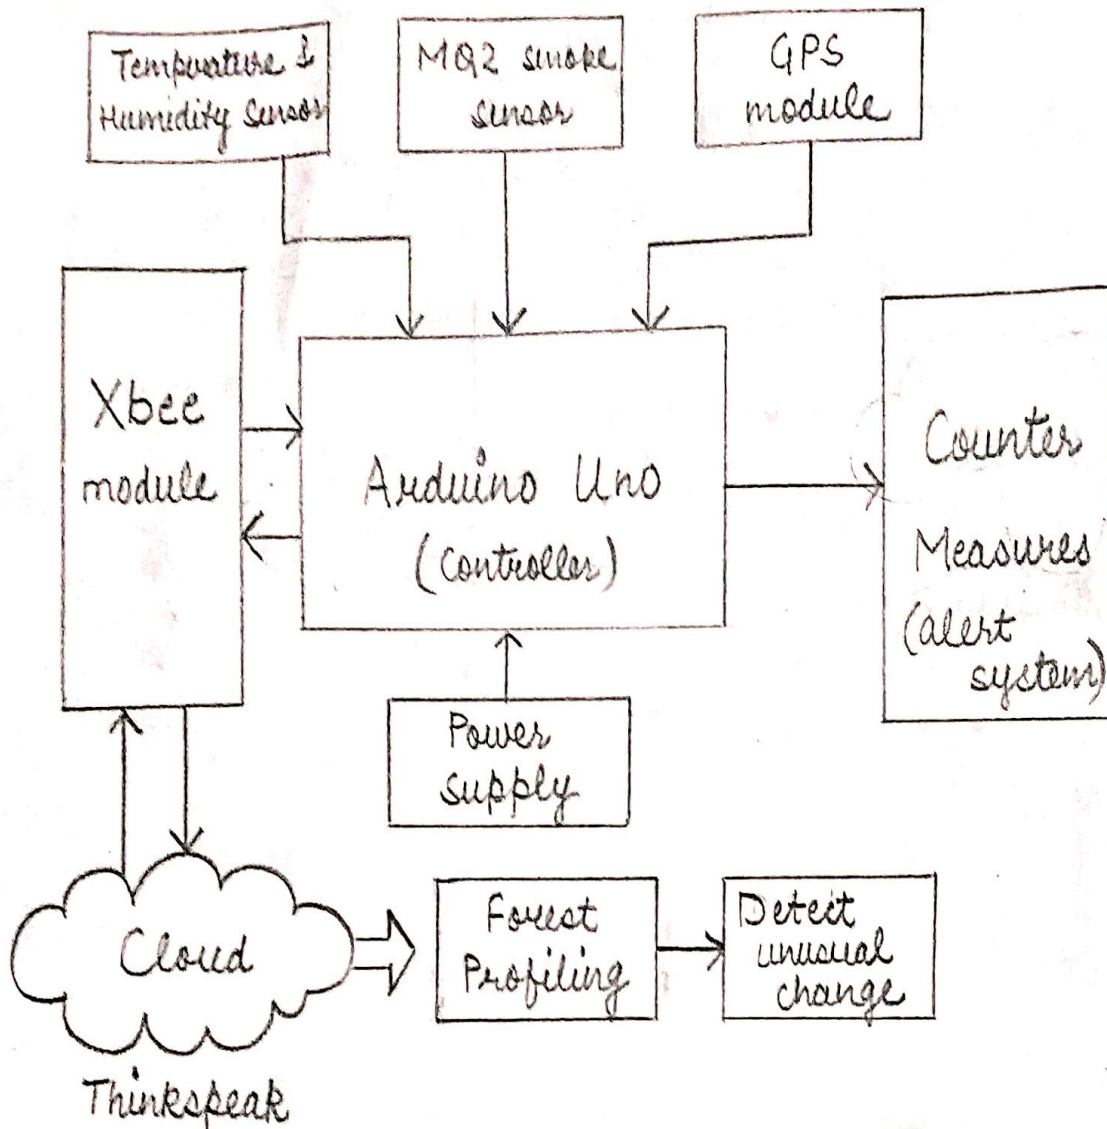 Temperature &
Humidity Sensor
MQ2 smoke
sensor
GPS
module
Xbee
module
Arduino Uno
(Controller)
Counter
Measures
(alert
system)
Power
supply
Cloud
Forest
Profiling
Detect
unusual
change
Thinkspeak